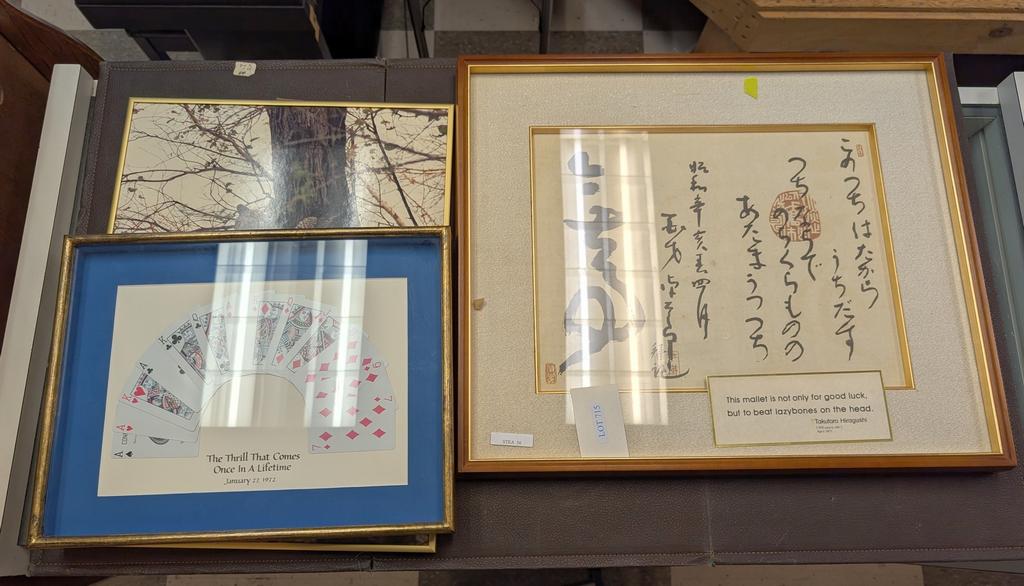 このつちはたから
うちだす
つちならで
のらくらものの
あたまうつつち
昭和辛亥春四月
百才
This mallet is not only for good luck,
but to beat lazybones on the head.
Takutaro Hiragushi
LOT 715
The Thrill That Comes
Once In A Lifetime
January 27, 1972